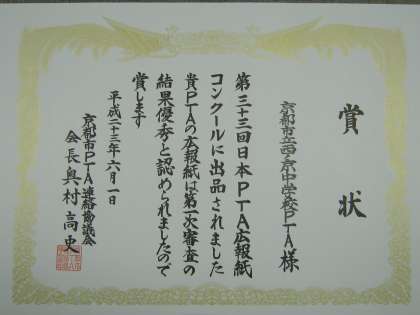 賞状
京都市立西ノ京中学校PTA様
第三十三回日本PTA広報紙
コンクールに出品されました
貴PTAの広報紙は第一次審査の
結果優秀と認められましたので
賞します
平成二十三年六月一日
京都市PTA連絡協議会
会長奥村高史